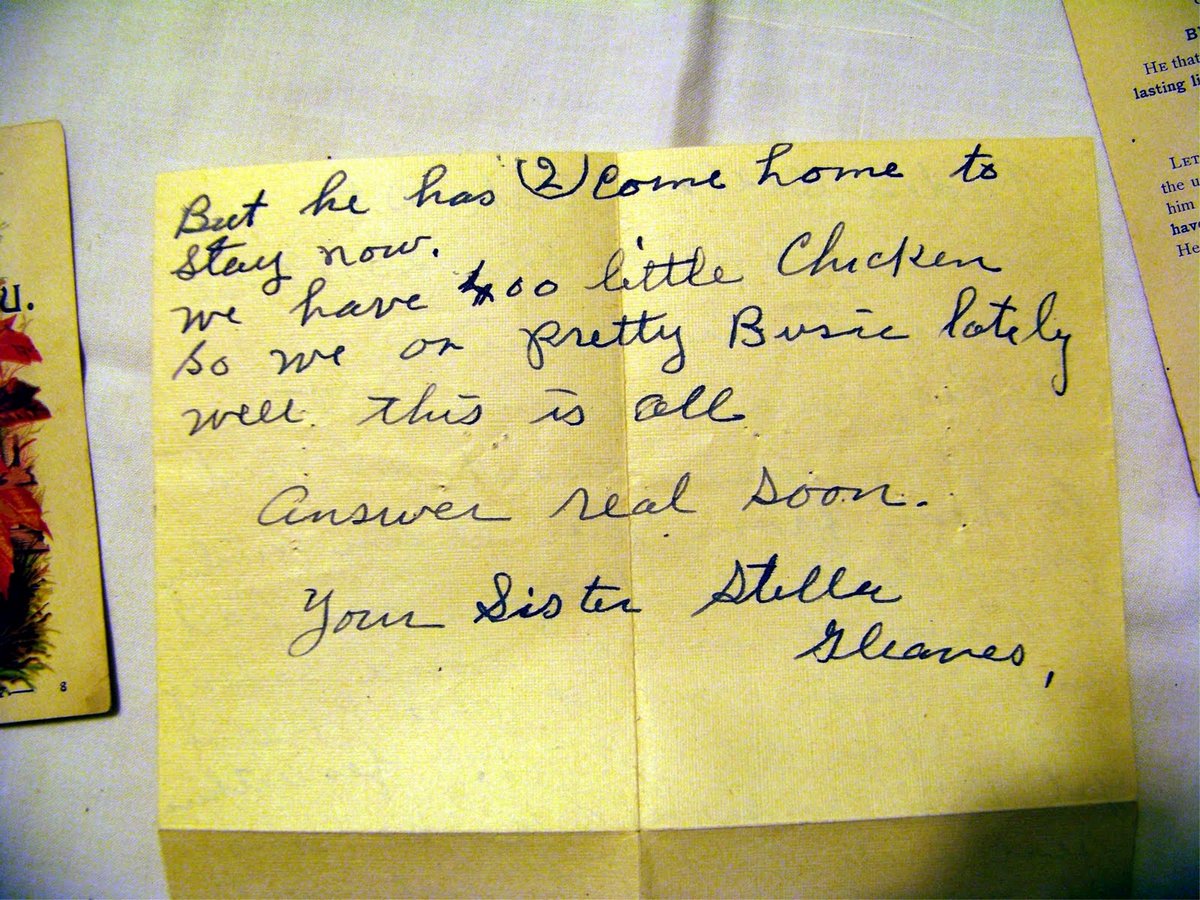 But he has (2) Come home to
stay now.
we have 400 little Chicken
so we or pretty Busie lately
well this is all
Answer real soon.
Your Sister Stella
Gleaves,
U.
8
B
HE that
lasting li
LET
the u
him
have
He